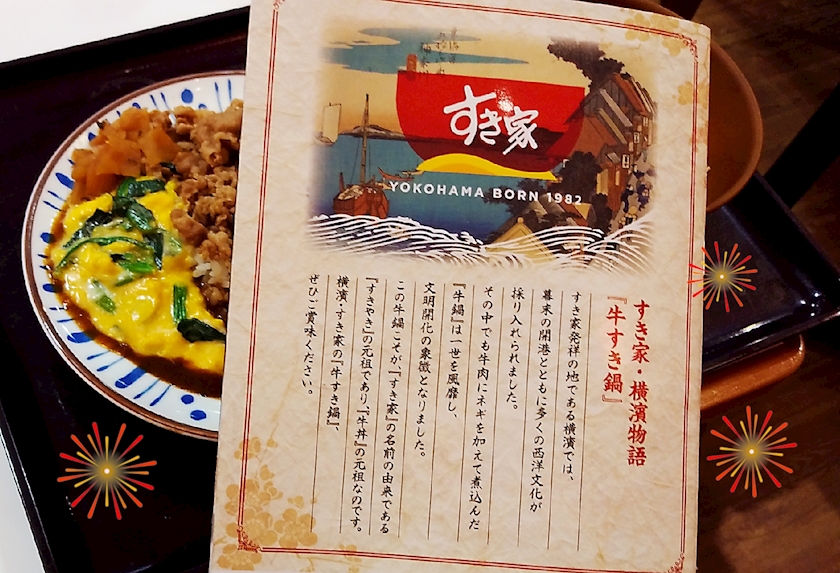 すき家
YOKOHAMA BORN 1982
すき家・横濱物語
『牛すき鍋』
すき家発祥の地である横濱では、
幕末の開港とともに多くの西洋文化が
採り入れられました。
その中でも牛肉にネギを加えて煮込んだ
『牛鍋』は一世を風靡し、
文明開化の象徴となりました。
この牛鍋こそが『すき家』の名前の由来である
『すきやき』の元祖であり『牛丼』の元祖なのです。
横濱・すき家の『牛すき鍋』、
ぜひご賞味ください。